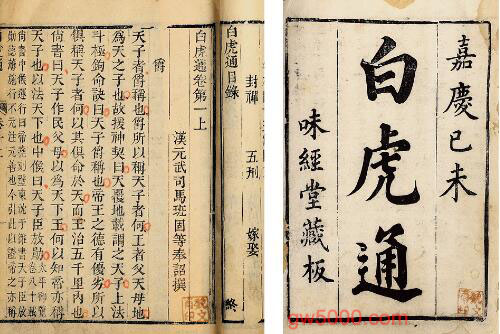 嘉慶己未
白虎通
味經堂藏板
封禪 五刑 嫁娶
白虎通目錄 終
白虎通卷第一上
漢元武司馬班固等奉詔撰
爵
天子者爵稱也爵所以稱天子者何王者父天母地
為天之子也故援神契曰天覆地載謂之天子上法
斗極鉤命訣曰天子爵稱也帝王之德有優劣所以
俱稱天子者何以其俱命於天而王治五千里內也
尚書曰天子作民父母以為天下王何以知帝亦稱
天子也以法天下也中候曰天子臣放勛
gw5000.com